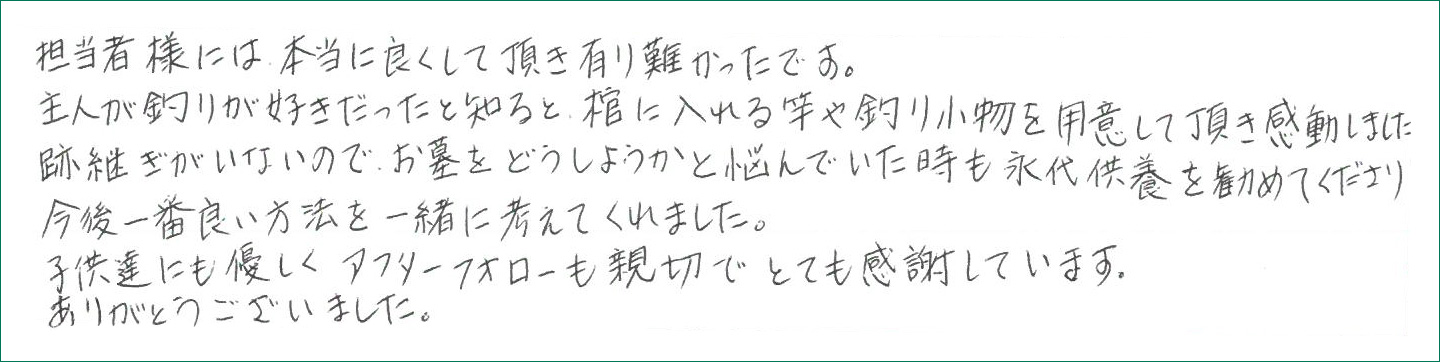 担当者様には、本当に良くして頂き有り難かったです。
主人が釣りが好きだったと知ると、棺に入れる竿や釣り小物を用意して頂き感動しました
跡継ぎがいないので、お墓をどうしようかと悩んでいた時も永代供養を勧めてくださり
今後一番良い方法を一緒に考えてくれました。
子供達にも優しくアフターフォローも親切でとても感謝しています。
ありがとうございました。